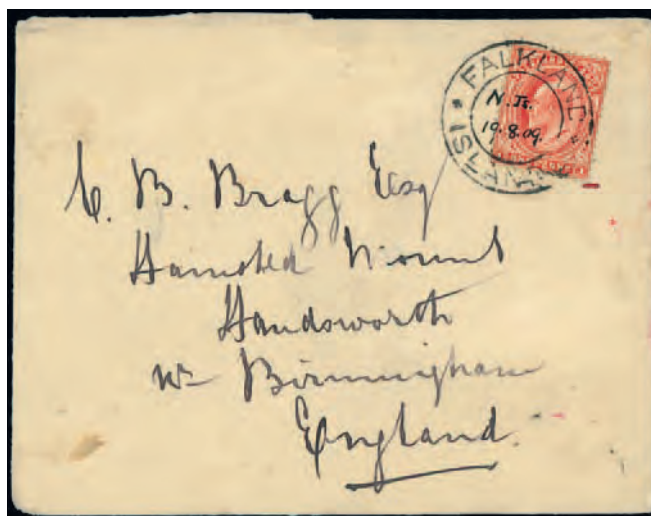 FALKLAND ISLANDS
N. Is.
19.8.09.
C. B. Bragg Esq
Hamsted Mount
Handsworth
Nr Birmingham
England.